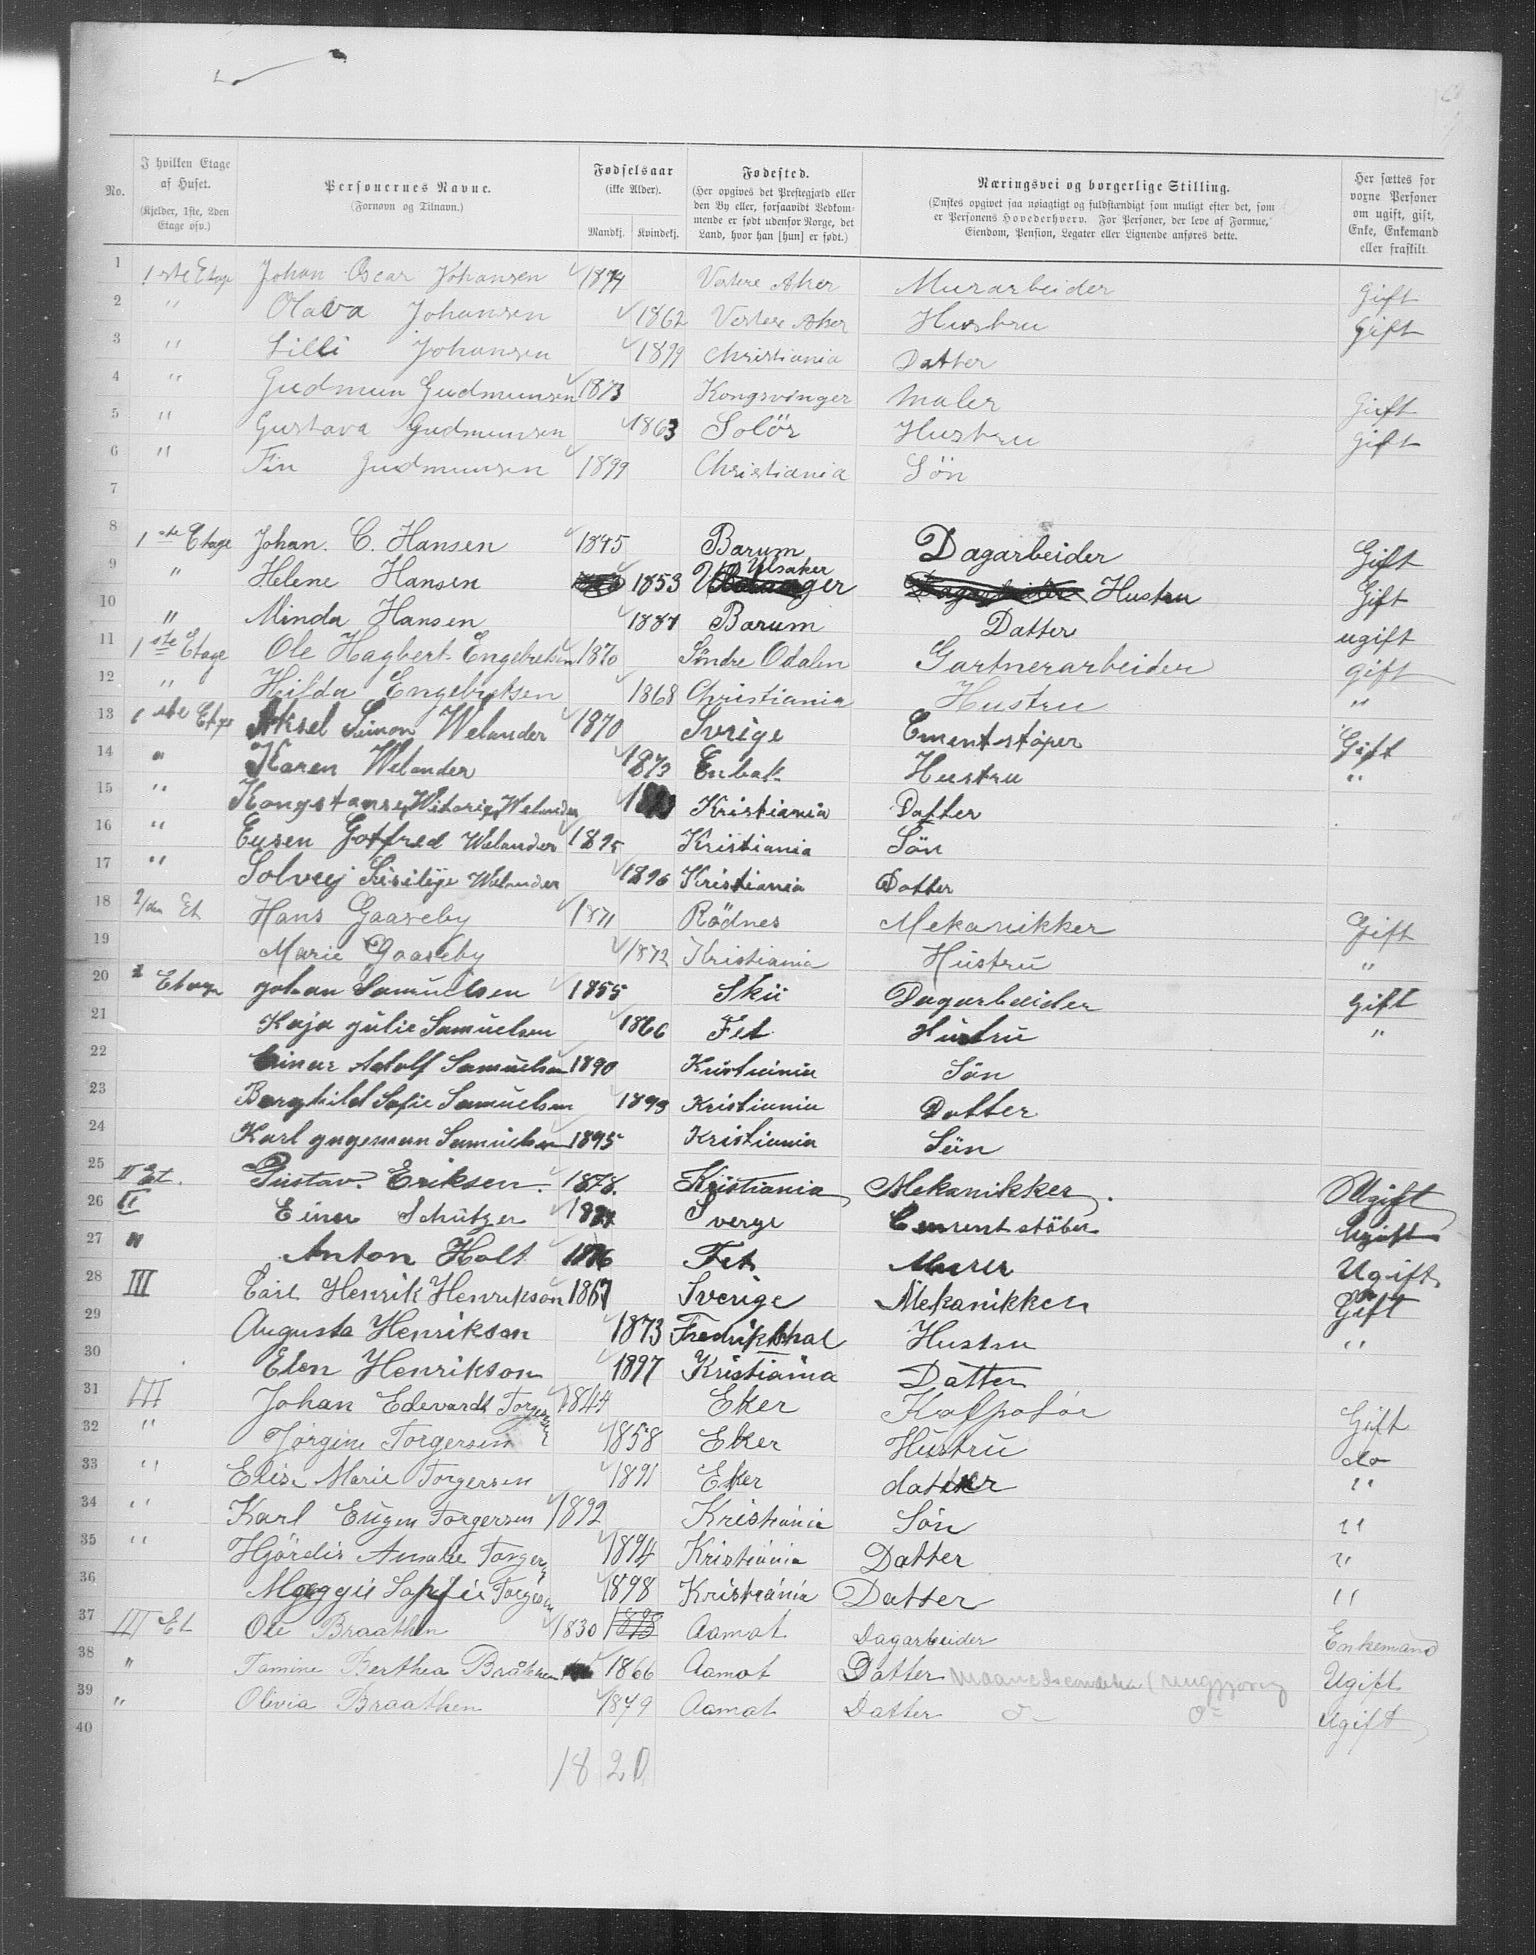 No.
I hvilken Etage af Huset.
(Kjelder, 1ste, 2den Etage osv.)
Personernes Navne.
(Fornavn og Tilnavn.)
Fødselsaar
(ikke Alder).
Mandkj. Kvindekj.
Fødested.
(Her opgives det Prestegjæld eller den By eller, forsaavidt Vedkommende er født udenfor Norge, det Land, hvor han [hun] er født.)
Næringsvei og borgerlige Stilling.
(Ønskes opgivet saa nøiagtigt og fuldstændigt som muligt efter det, som er Personens Hovederhverv. For Personer, der leve af Formue, Eiendom, Pension, Legater eller Lignende anføres dette.
Her sættes for voxne Personer om ugift, gift, Enke, Enkemand eller fraskilt
1 1ste Etage Johan Oscar Johansen 1874 Vestere Aker Murarbeider Gift
2 " Olava Johansen 1862 Vestere Aker Hustru Gift
3 " Lilli Johansen 1899 Christiania Datter
4 " Gudmun Gudmunsen 1873 Kongsvinger Maler Gift
5 " Gustava Gudmunsen 1863 Solör Hustru Gift
6 " Fin Gudmunsen 1899 Christiania Sön
7
8 1ste Etage Johan. C. Hansen 1845 Barum Dagarbeider Gift
9 " Helene Hansen 1853 Ulsaker Hustru Gift
10 " Minda Hansen 1881 Barum Datter ugift
11 1ste Etage Ole Hagbert Engebretsen 1870 Söndre Odalen Gartnerarbeider gift
12 " Hilda Engebretsen 1868 Christiania Hustru "
13 1ste Etage Aksel Simon Welander 1870 Sverige Cmentstöper Gift
14 " Karen Welander 1873 Enbak Hustru "
15 " Kongstanse Witoria Welander Kristiania Datter
16 " Eusen Gotfred Welander 1895 Kristiania Sön
17 " Solvej Sisilije Welander 1896 Kristiania Datter
18 2/den Et Hans Gaaseby 1871 Rödnes Mekanikker Gift
19 Marie Gaaseby 1872 Kristiania Hustru "
20 2 Etage Johan Samuelsen 1855 Skii Dagarbeider Gift
21 Kaja Julie Samuelsen 1866 Fet Hustru "
22 Einar Adolf Samuelsen 1890 Kristiania Sön
23 Borghild Sofie Samuelsen 1893 Kristiania Datter
24 Karl Ingeman Samuelsen 1895 Kristiania Sön
25 II Et. Gustav. Eriksen. 1878. Kristiania Mekanikker. Ugift
26 II Einar Schützer Sverge Cement stöber Ugift
27 " Anton Holt 1876 Fet Murer Ugift
28 III Carl Henrik Henrikson 1867 Sverige Mekanikken Gift
29 Augusta Henrikson 1873 Fredrikshal Hustru "
30 Elen Henrikson 1897 Kristiania Datter
31 III Johan Edevardt Torgersen 1844 Eker Kolportör Gift
32 " Jörgine Torgersen 1858 Eker Hustru do
33 " Elise Marie Torgersen 1891 Eker datter "
34 " Karl Eugen Torgersen 1892 Kristiania Sön "
35 " Hjördis Amalie Torgers 1894 Kristiania Datter "
36 Maggie Sophie Torgersen 1898 Kristiania Datter "
37 III Et Ole Braathen 1830 1898 Aamot Dagarbeider Enkemand
38 " Tamine Berthea Bråthen 1866 Aamot Datter Ugift
39 " Olivia Braathen 1879 Aamot Datter Ugift
40
18 20